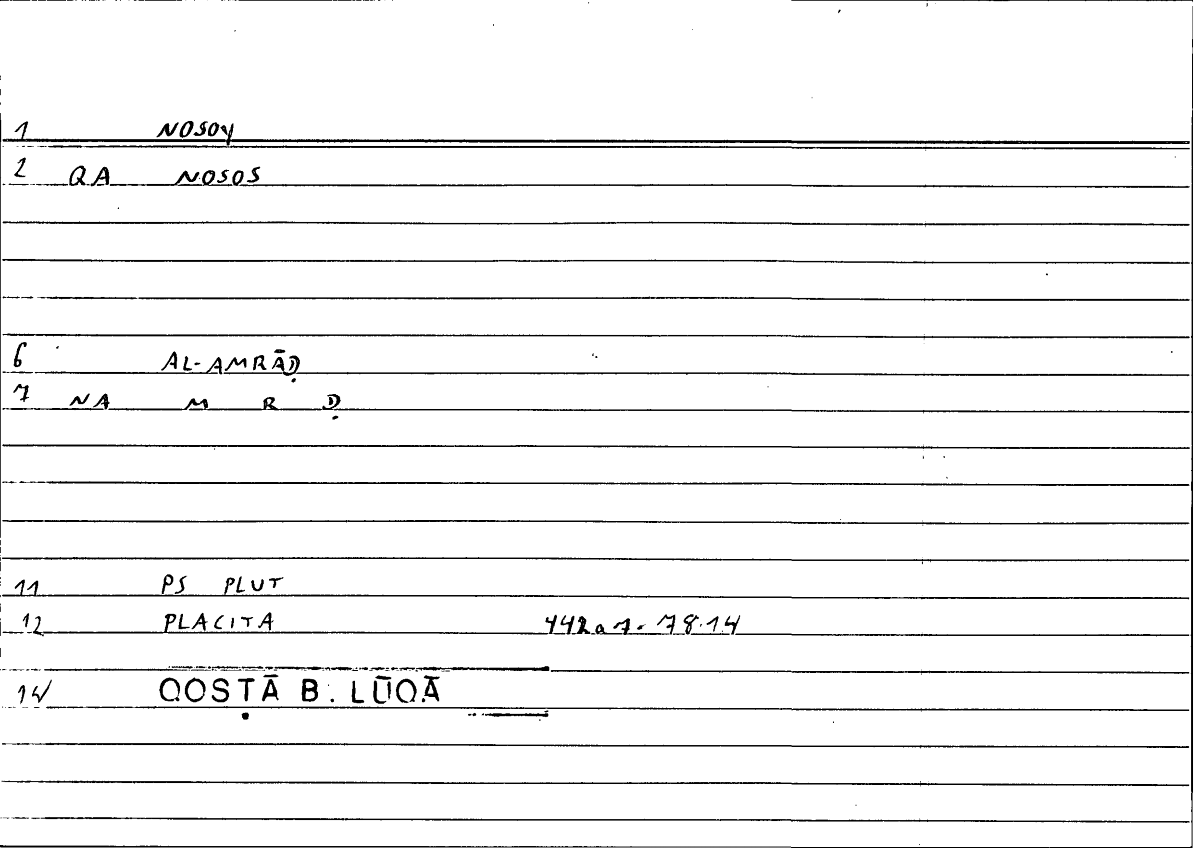 1 NOSOY
2 QA NOSOS
6 AL-AMRĀḌ
7 NA M R Ḍ
11 PS PLUT
12 PLACITA 442a7-78.14
14 QOSṬĀ B. LŪQĀ